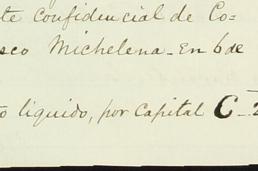 te confidencial de Co=
sco Michelena. En 6 de
o liquido, por Capital C_